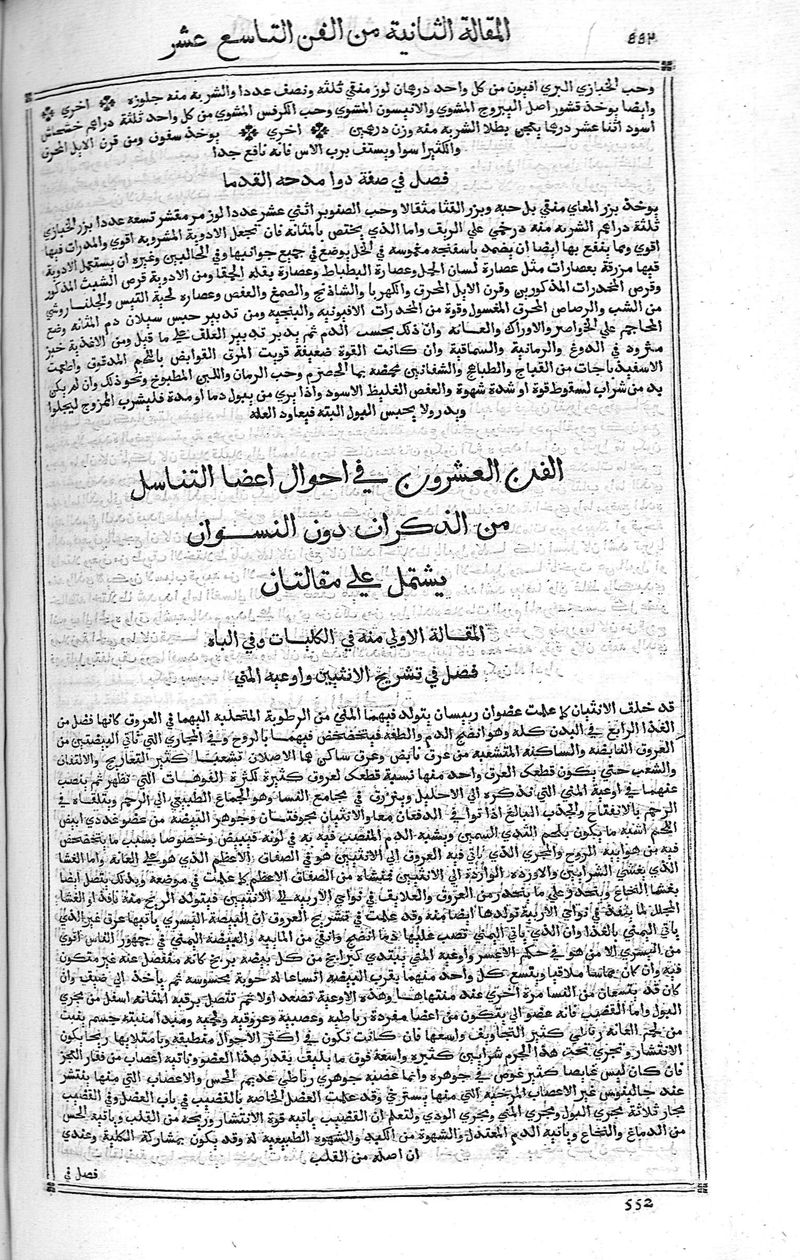 ٤٤٢
المقالة الثانية من الفن التاسع عشر
وحب الخبازي البري افيون من كل واحد درهمان لوز منقي ثلثة ونصف عددا والشربة منه جلوزه اخري
وايضا يوخذ قشور اصل اليبروج المشوي والانيسون المشوي وحب الكرفس المشوي من كل واحد ثلثة دراهم خشخاش
اسود اثنا عشر درهما يعجن بطلا الشربة منه وزن درهمين اخري يوخذ سفون ومن قرن الايل المحرق
والكثيرا سوا ويستف برب الاس فانه نافع جدا
فصل في صفة دوا مدحه القدما
يوخذ بزر المعاي منقي بل حبه وبزر القثا مثقالا وحب الصنوبر اثني عشر عددا لوز مر مقشر تسعة عددا بزر الخبازي
ثلثة دراهم الشربة منه درخمي علي الريف واما الذي يختص بالمثانه فان تجعل الادوية المشروبة اقوي والمدرات فيها
اقوي ومما ينفع بها ايضا ان يضمد باسفنجة مغموسة في الخل يوضع في جميع جوانبها وفي الحالبين وغيره ان يستعمل الادوية
فيها مزرقة بعصارات مثل عصارة لسان الحمل وعصارة البطباط وعصارة بقله الحمقا ومن الادوية قرص الشبث المذكور
وقرص المخدرات المذكورين وقرن الايل المحرق والكهربا والشاذنج والصمغ والعفص وعصاره لحية التيس والجلنار وشي
من الشب والرصاص المحرق المغسول وقوة من المخدرات الافيونيه والبنجيه ومن تدبير حبس سيلان دم المثانه وضع
المحاجم علي الخواصر والاوراك والعانه وان ذلك يحبس الدم ثم يدبر تدبير العلف علي ما قيل ومن الاغذية خبز
مثرود في الدوغ والرمانية والسماقية وان كانت القوة ضعيفة قويت المرق القوابض باللحم المدقوق واطعمت
الاسفيذباجات من القباج والطياهج والشفانين محمضه بما الحصرم وحب الرمان واللبن المطبوخ ونحو ذلك وان لم يكن
بد من شراب لسقوط قوة او شدة شهوة والعفص الغليظ الاسود واذا بري من يبول دما او مدة فليشرب المزوج ليجلوا
ويدر ولا يحبس البول البته فيعاود العله
الفن العشرون في احوال اعضا التناسل
من الذكران دون النسوان
يشتمل علي مقالتان
المقالة الاولي منه في الكليات وفي الباه
فصل في تشريح الانثيين واوعية المني
قد خلف الانثيان كما علمت عضوان رييسان يتولد فيهما المني من الرطوبة المتحلبة اليهما في العروق كانها فضل من
الغذا الرابع في البدن كله وهو انضج الدم والطفه فيتخضخض فيهما بالروح وفي المجاري التي تاتي البيضتين من
العروق النابضه والساكنه المتشعبه من عرق نابض وعرق ساكن هما الاصلان تشعبا كثير التعاريج والالتفان
والشعب حتي يكون قطعك العرق واحد منها نسبة قطعك لعروق كثيرة لكثرة الفوهات التي تظهر ثم ينصب
عنهما في اوعية المني التي نذكره الي الاحليل وينزرق في مجامع النسا وهو الجماع الطبيعي الي الرحم ويتلقاه فم
الرحم بالانفتاح والجذب البالغ اذا توا في الدفعتان معا والانثيان مجوفتان وجوهر البيضة من عضو غددي ابيض
اللحم اشبه ما يكون بلحم الثدي السمين ويشبه الدم المنصب فيه به في لونه فيبيض وخصوصا بسبب ما يتخضخض
فيه من هوايية الروح والمجري الذي ياتي فيه العروق الي الانثيين هو في الصفاق الاعظم الذي هو علي العانة واما الغشا
الذي يغشي الشرايين والاورده الواردة الي الانثيين فمنشاه من الصفاق الاعظم كما علمت في موضعه وبذلك يتصل ايضا
بغشا النخاع وينحدر علي ما ينحدر من العروق والعلايف في نواي الاربية الي الانثيين فيتولد الريح منه نافذا والغشا
المجلل لما ينفذ في نواي الاربية تولدها ايضا منه وقد علمت في تشريح العروق ان البيضة اليسري ياتيها عرق غير الذي
ياتي اليمني بالغذا وان الذي ياتي اليمني تصب عليها دما انضج وانقي من الماييه والبيضة اليمني في جمهور الناس اقوي
من اليسري الا من هو في حكم الاعسر واوعية المني يبتدي كبرايخ من كل بيضه بربخ كانه منفصل عنه غير متكون
فيه وان كان مماسا ملاقيا ويتسع كل واحد منهما بقرب البيضه اتساعا له خوبة محسوسه ثم ياخذ الي ضيف وان
كان قد يتسعان من النسا مرة اخري عند منتهاها وهذه الاوعية تصعد اولا ثم تتصل برقبة المثانه اسفل من مجري
البول واما القضيب فانه عضو الي يتكون من اعضا مفردة رباطيه وعصبية وعروقية ولحمية ومبدا منبته جسم ينبت
من لحم العانه رباطي كثير التجاويف واسعها فان كانت تكون في اكثر الاحوال منطبقة وبامتلايها ريحا يكون
الانتشار وتجري تحت هذا الجرم شرايين كثيره واسعة فوق ما يليف بقدر هذا العضو وتاتيه اعصاب من فقار العجز
فان كان ليس غايصا كثير غوص في جوهره وانما عصبه جوهري رباطي عديم الحس والاعصاب التي منها ينتشر
عند جالينوس غير الاعصاب المرخيه التي منها يسترخي وقد علمت العضل الخاصه بالقضيب في باب العضل وفي القضيب
مجار ثلاثة مجري البول ومجري المني ومجري الودي ولتعلم ان القضيب ياتيه قوة الانتشار وريحه من القلب وياتيه الحس
من الدماغ والنخاع وياتيه الدم المعتدل والشهوة من الكبد والشهوة الطبيعية له وقد يكون بمشاركة الكلية وعندي
ان اصله من القلب
فصل في
552